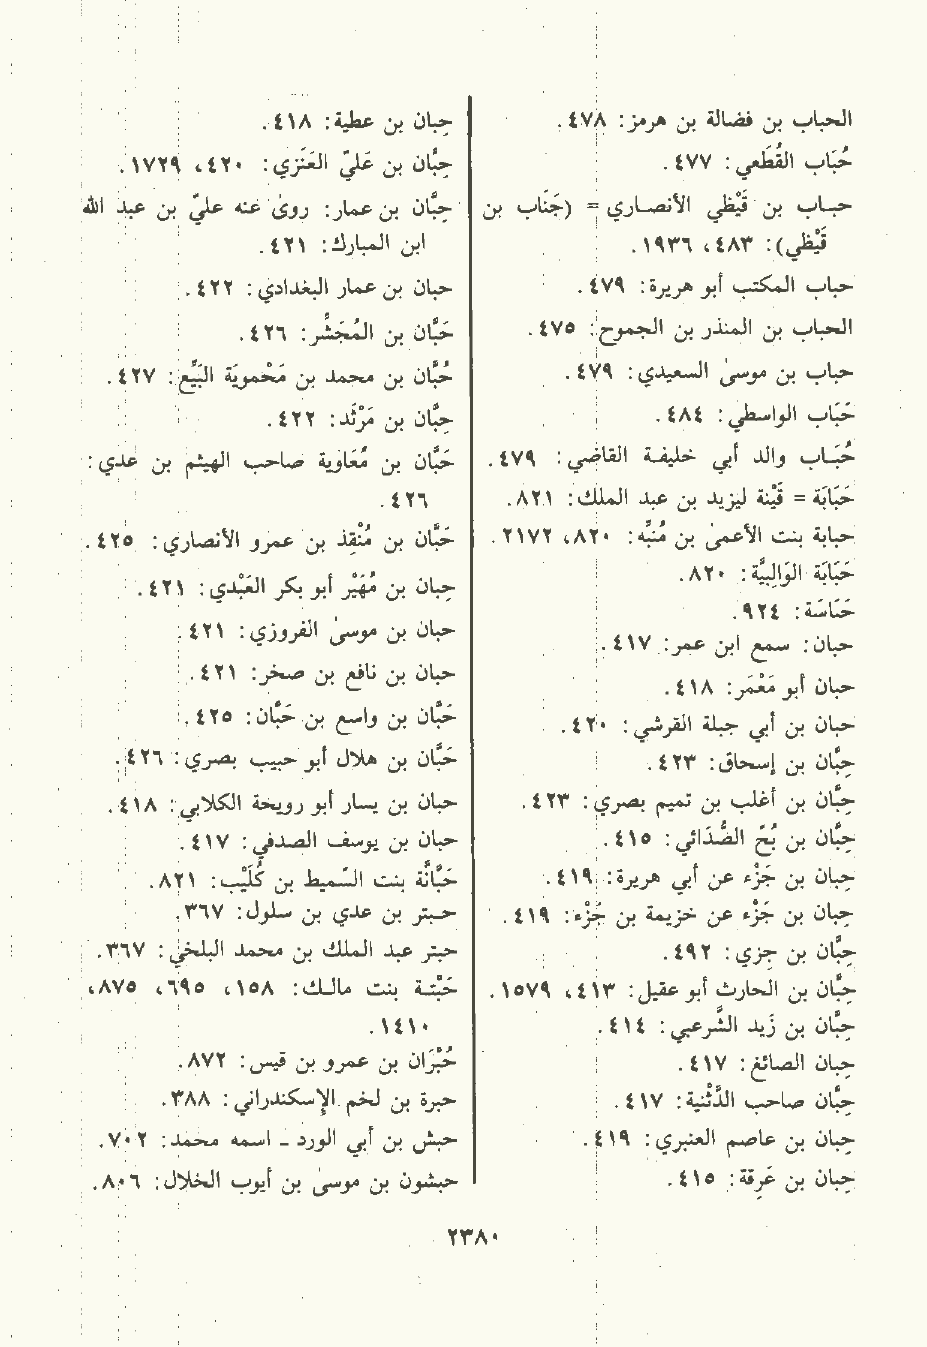 الحباب بن فضالة بن هرمز: ٤٧٨.
حُبَاب القُطَعي: ٤٧٧.
حباب بن قَيْظي الأنصاري = (جَنَاب بن
قَيْظي): ٤٨٣، ١٩٣٦.
حباب المكتب أبو هريرة: ٤٧٩.
الحباب بن المنذر بن الجموح: ٤٧٥.
حباب بن موسىٰ السعيدي: ٤٧٩.
حَبَاب الواسطي: ٤٨٤.
حُبَاب والد أبي خليفة القاضي: ٤٧٩.
حَبَابَة = قَيْنة ليزيد بن عبد الملك: ٨٢١.
حبابة بنت الأعمىٰ بن مُنَبِّه: ٨٢٠، ٢١٧٢.
حَبَابَة الوَالِبيَّة: ٨٢٠.
حَبَاسَة: ٩٢٤.
حبان: سمع ابن عمر: ٤١٧.
حبان أبو مَعْمَر: ٤١٨.
حبان بن أبي جبلة القرشي: ٤٢٠.
حِبَّان بن إسحاق: ٤٢٣.
حِبَّان بن أغلب بن تميم بصري: ٤٢٣.
حِبَّان بن بُحّ الصُّدَائي: ٤١٥.
حِبان بن جَزْء عن أبي هريرة: ٤١٩.
حِبان بن جَزْء عن خزيمة بن جَزْء: ٤١٩.
حِبَّان بن جزي: ٤٩٢.
حِبَّان بن الحارث أبو عقيل: ٤١٣، ١٥٧٩.
حِبَّان بن زيد الشَّرعبي: ٤١٤.
حِبان الصائغ: ٤١٧.
حِبَّان صاحب الدَّثْنية: ٤١٧.
حِبان بن عاصم العنبري: ٤١٩.
حِبان بن عَرِقة: ٤١٥.
حِبان بن عطية: ٤١٨.
حِبَّان بن عَليّ العَنَزي: ٤٢٠، ١٧٢٩.
حِبَّان بن عمار: روىٰ عنه عليّ بن عبد الله
ابن المبارك: ٤٢١.
حبان بن عمار البغدادي: ٤٢٢.
حَبَّان بن المُجَشِّر: ٤٢٦.
حُبَّان بن محمد بن مَحْمويَة البَيِّع: ٤٢٧.
حِبَّان بن مَرْثَد: ٤٢٢.
حَبَّان بن مُعَاوية صاحب الهيثم بن عدي:
٤٢٦.
حَبَّان بن مُنْقِذ بن عمرو الأنصاري: ٤٢٥.
حِبان بن مُهَيْر أبو بكر العَبْدي: ٤٢١.
حبان بن موسىٰ الفروزي: ٤٢١.
حبان بن نافع بن صخر: ٤٢١.
حَبَّان بن واسع بن حَبَّان: ٤٢٥.
حَبَّان بن هلال أبو حبيب بصري: ٤٢٦.
حبان بن يسار أبو رويحة الكلابي: ٤١٨.
حبان بن يوسف الصدفي: ٤١٧.
حَبَّانَّة بنت السّميط بن كُلَيْب: ٨٢١.
حبتر بن عدي بن سلول: ٣٦٧.
حبتر عبد الملك بن محمد البلخي: ٣٦٧.
حَبْتة بنت مالك: ١٥٨، ٦٩٥، ٨٧٥،
١٤١٠.
حُبْرَان بن عمرو بن قيس: ٨٧٢.
حبرة بن لخم الإسكندراني: ٣٨٨.
حبش بن أبي الورد - اسمه محمد: ٧٠٢.
حبشون بن موسىٰ بن أيوب الخلال: ٨٠٦.
٢٣٨٠